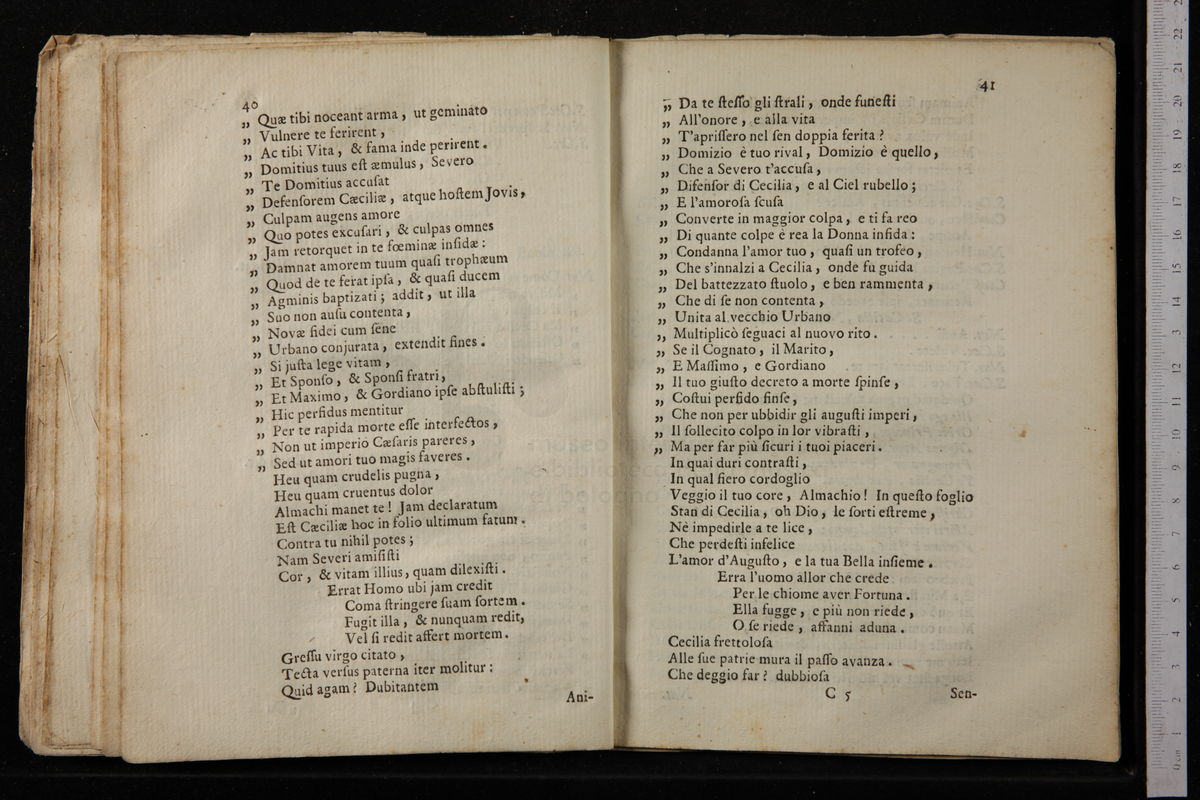 40
„ Quæ tibi noceant arma, ut geminato
„ Vulnere te ferirent,
„ Ac tibi Vita, & fama inde perirent.
„ Domitius tuus eſt æmulus, Severo
„ Te Domitius accuſat
„ Defenſorem Cæciliæ, atque hoſtem Jovis,
„ Culpam augens amore
„ Quo potes excuſari, & culpas omnes
„ Jam retorquet in te fœminæ infidæ:
„ Damnat amorem tuum quaſi trophæum
„ Quod de te ferat ipſa, & quaſi ducem
„ Agminis baptizati; addit, ut illa
„ Suo non auſu contenta,
„ Novæ fidei cum ſene
„ Urbano conjurata, extendit fines.
„ Si juſta lege vitam,
„ Et Sponſo, & Sponſi fratri,
„ Et Maximo, & Gordiano ipſe abſtuliſti;
„ Hic perfidus mentitur
„ Per te rapida morte eſſe interfectos,
„ Non ut imperio Cæſaris pareres,
„ Sed ut amori tuo magis faveres.
Heu quam crudelis pugna,
Heu quam cruentus dolor
Almachi manet te! Jam declaratum
Eſt Cæciliæ hoc in folio ultimum fatum.
Contra tu nihil potes;
Nam Severi amiſiſti
Cor, & vitam illius, quam dilexiſti.
Errat Homo ubi jam credit
Coma ſtringere ſuam ſortem.
Fugit illa, & nunquam redit,
Vel ſi redit affert mortem.
Greſſu virgo citato,
Tecta verſus paterna iter molitur:
Quid agam? Dubitantem
Ani-
41
„ Da te ſteſſo gli ſtrali, onde funeſti
„ All'onore, e alla vita
„ T'apriſſero nel ſen doppia ferita?
„ Domizio è tuo rival, Domizio è quello,
„ Che a Severo t'accuſa,
„ Difenſor di Cecilia, e al Ciel rubello;
„ E l'amoroſa ſcuſa
„ Converte in maggior colpa, e ti fa reo
„ Di quante colpe è rea la Donna infida:
„ Condanna l'amor tuo, quaſi un trofeo,
„ Che s'innalzi a Cecilia, onde fu guida
„ Del battezzato ſtuolo, e ben rammenta,
„ Che di ſe non contenta,
„ Unita al vecchio Urbano
„ Multiplicò ſeguaci al nuovo rito.
„ Se il Cognato, il Marito,
„ E Maſſimo, e Gordiano
„ Il tuo giuſto decreto a morte ſpinſe,
„ Coſtui perfido finſe,
„ Che non per ubbidir gli auguſti imperi,
„ Il ſollecito colpo in lor vibraſti,
„ Ma per far più ſicuri i tuoi piaceri.
In quai duri contraſti,
In qual fiero cordoglio
Veggio il tuo core, Almachio! In queſto foglio
Stan di Cecilia, oh Dio, le ſorti eſtreme,
Nè impedirle a te lice,
Che perdeſti infelice
L'amor d'Auguſto, e la tua Bella inſieme.
Erra l'uomo allor che crede
Per le chiome aver Fortuna.
Ella fugge, e più non riede,
O ſe riede, affanni aduna.
Cecilia frettoloſa
Alle ſue patrie mura il paſſo avanza.
Che deggio far? dubbioſa
C 5
Sen-